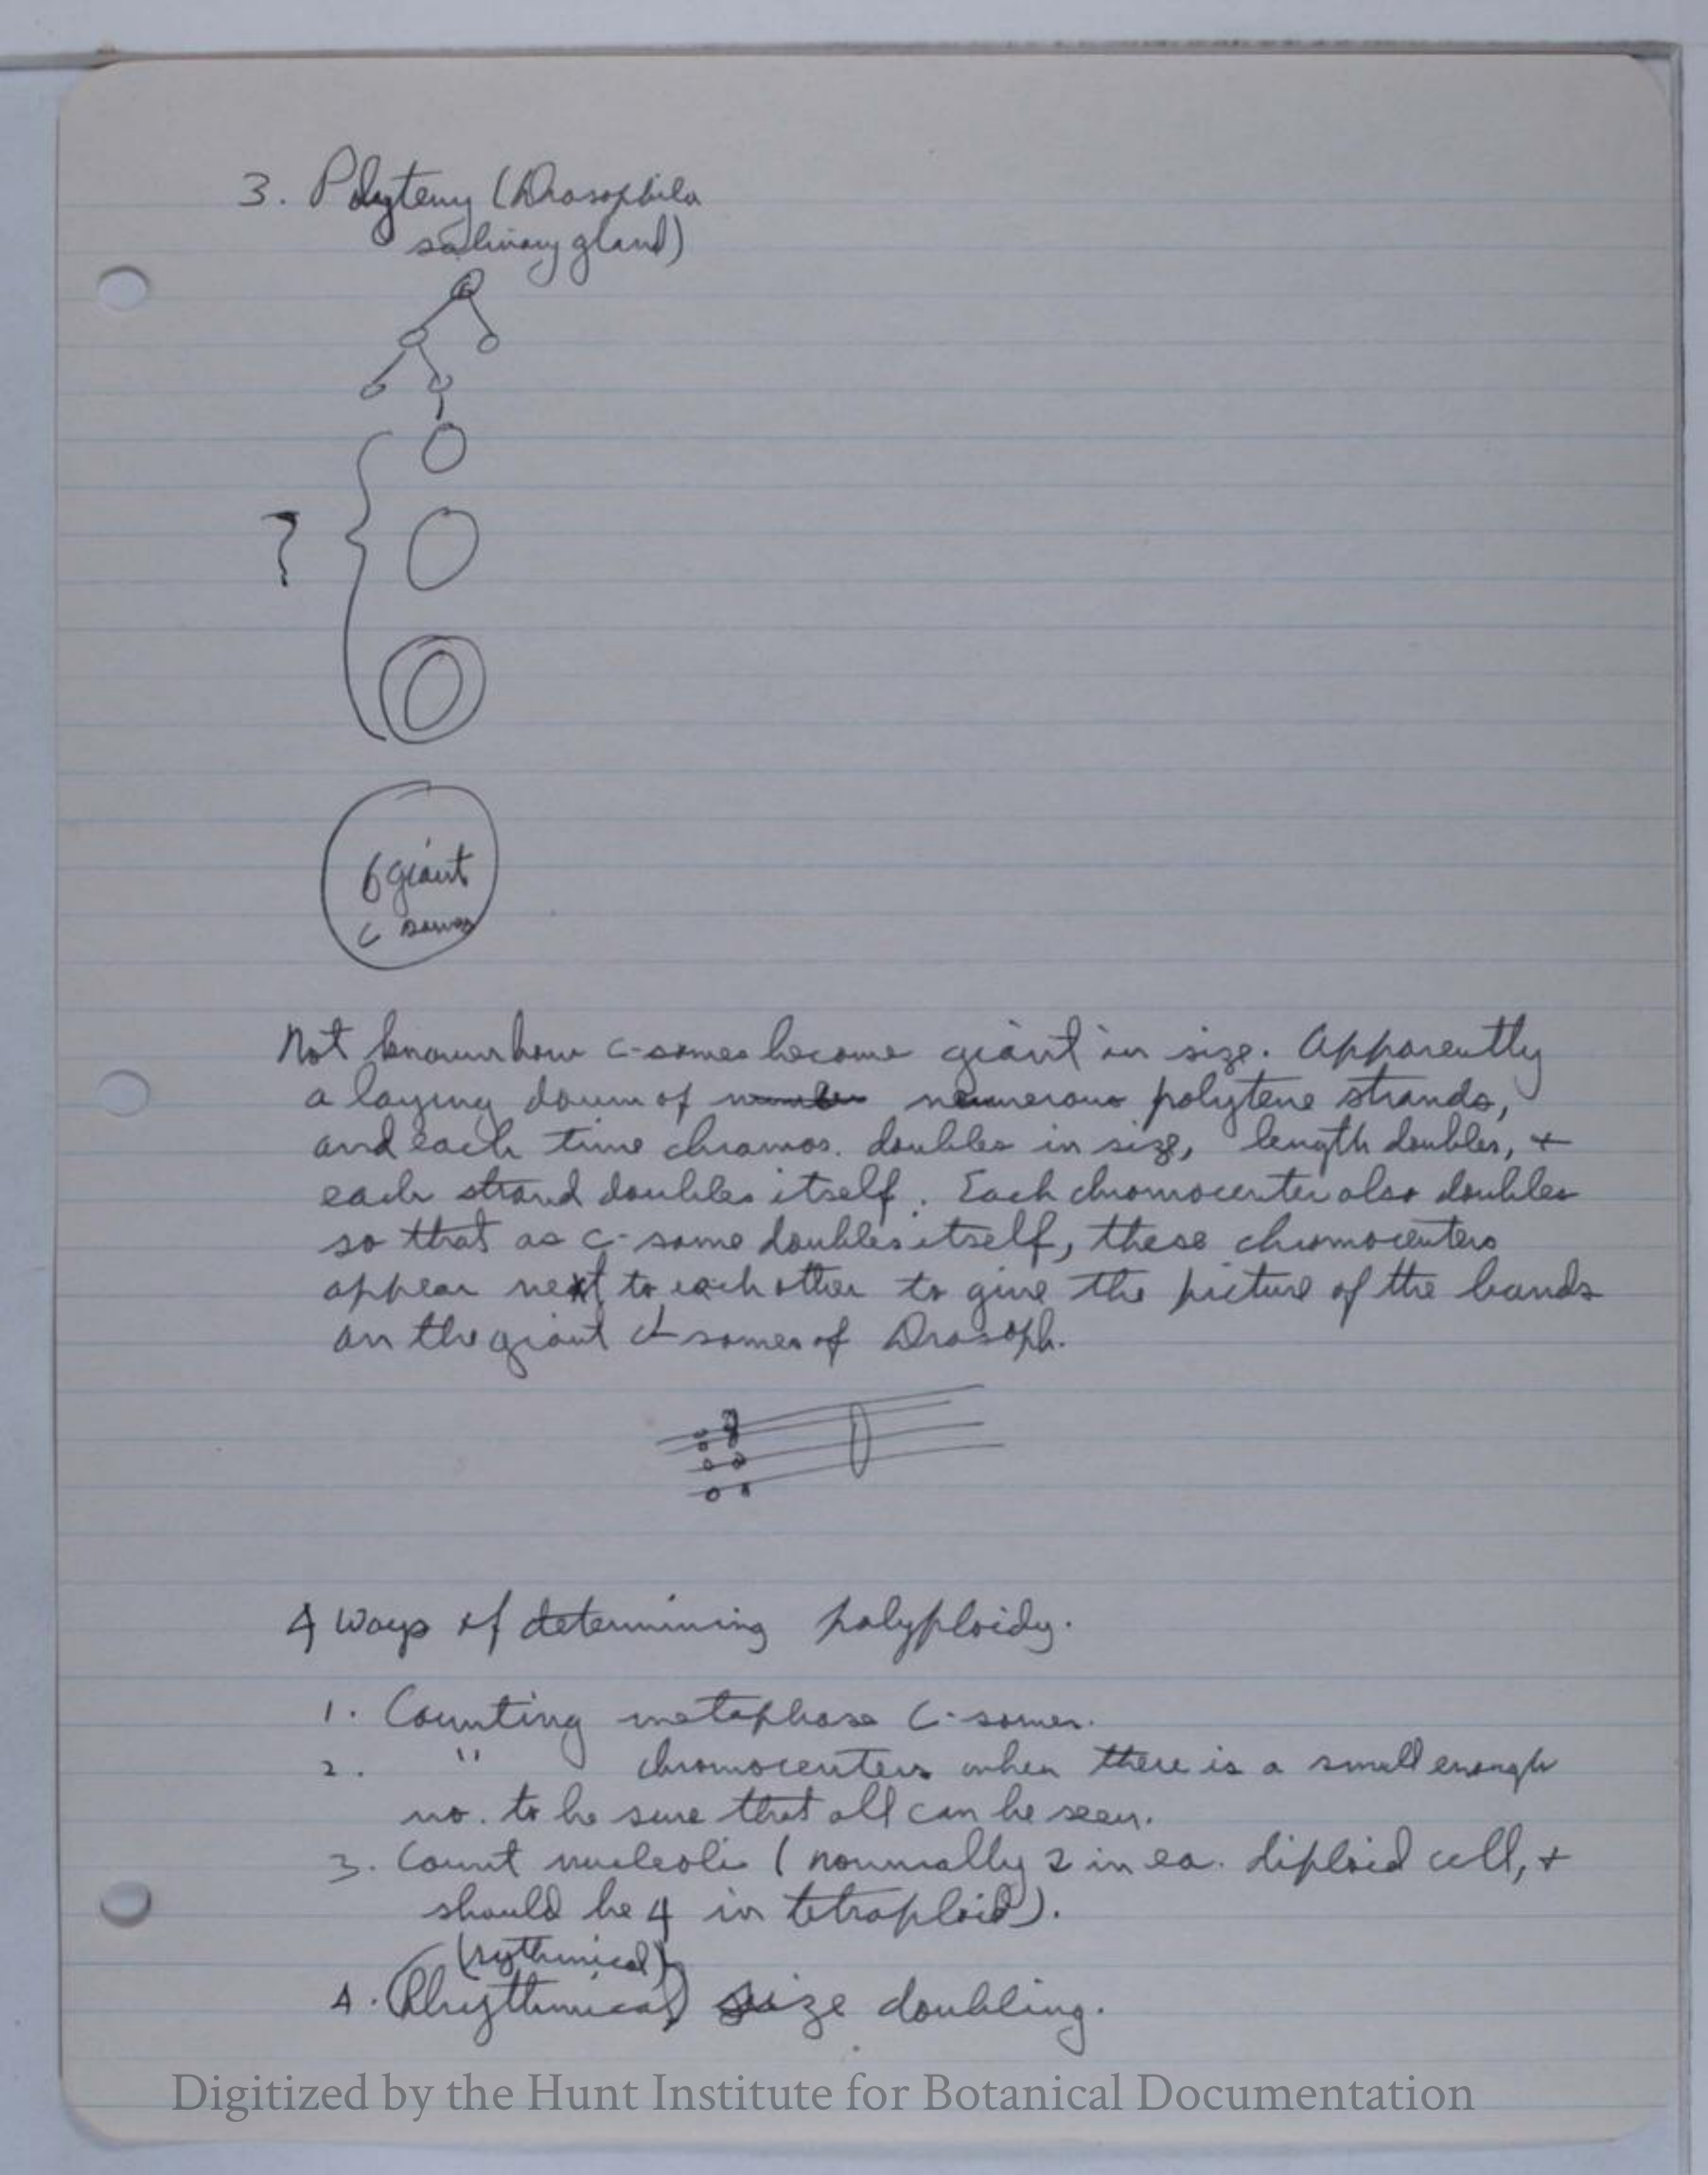 3. Polyteny (Drosophila
salivary gland)
?
6 giant
c somes
Not known how c-somes become giant in size. Apparently
a laying down of numerous polytene strands,
and each time chromos. doubles in size, length doubles, +
each strand doubles itself. Each chromocenter also doubles
so that as c-some doubles itself, these chromocenters
appear next to each other to give the picture of the bands
on the giant c-somes of Drosoph.
4 Ways of determining polyploidy.
1. Counting metaphase C-somes.
2. " chromocenters when there is a small enough
no. to be sure that all can be seen.
3. Count nucleoli (normally 2 in ea. diploid cell, +
should be 4 in tetraploid).
(rythmical)
4. (Rhythmical) size doubling.
Digitized by the Hunt Institute for Botanical Documentation